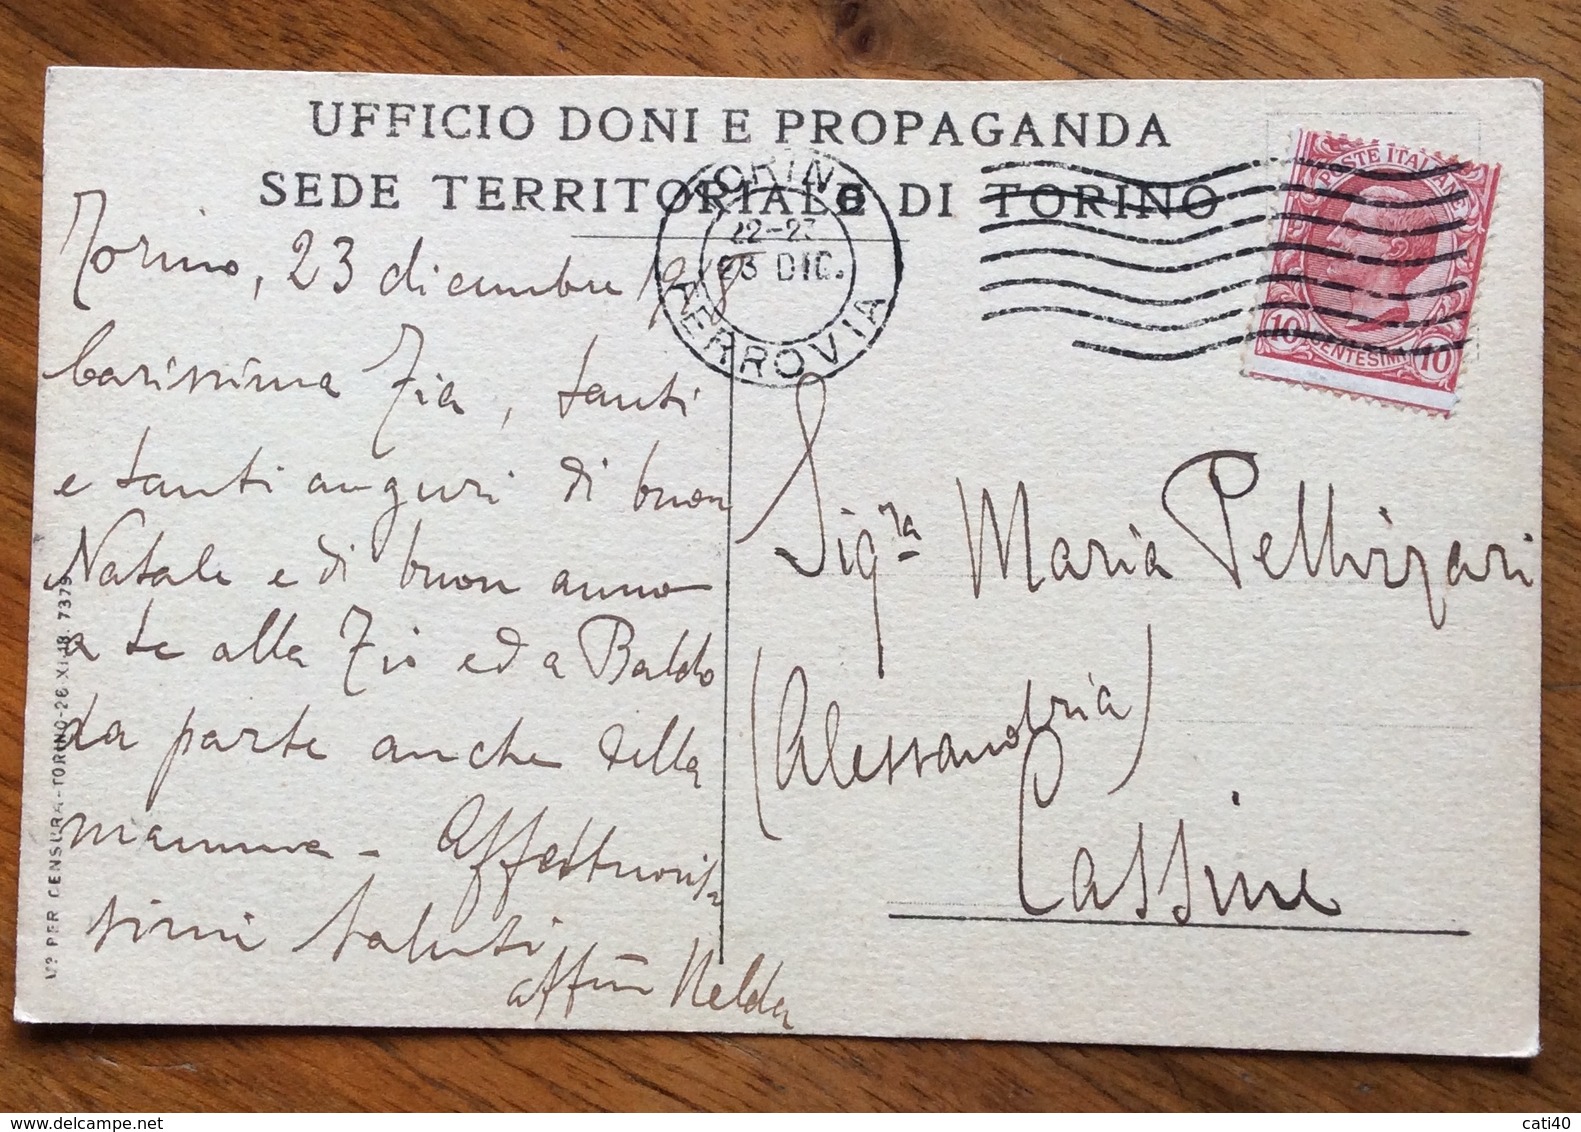 UFFICIO DONI E PROPAGANDA
SEDE TERRITORIALE DI TORINO
TORINO
22-23
23 DIC.
FERROVIA
POSTE ITALIANE
10 CENTESIMI 10
Torino, 23 dicembre 1918
Carissima Zia, tanti
e tanti auguri di buon
Natale e di buon anno
a te allo Zio ed a Baldo
da parte anche della
mamma - Affettuosis
simi saluti
aff.ma Nelda
Sig.ra Maria Pellizzari
(Alessandria)
Cassine
Vº PER CENSURA-TORINO-26 XI-18. 7379
cati40